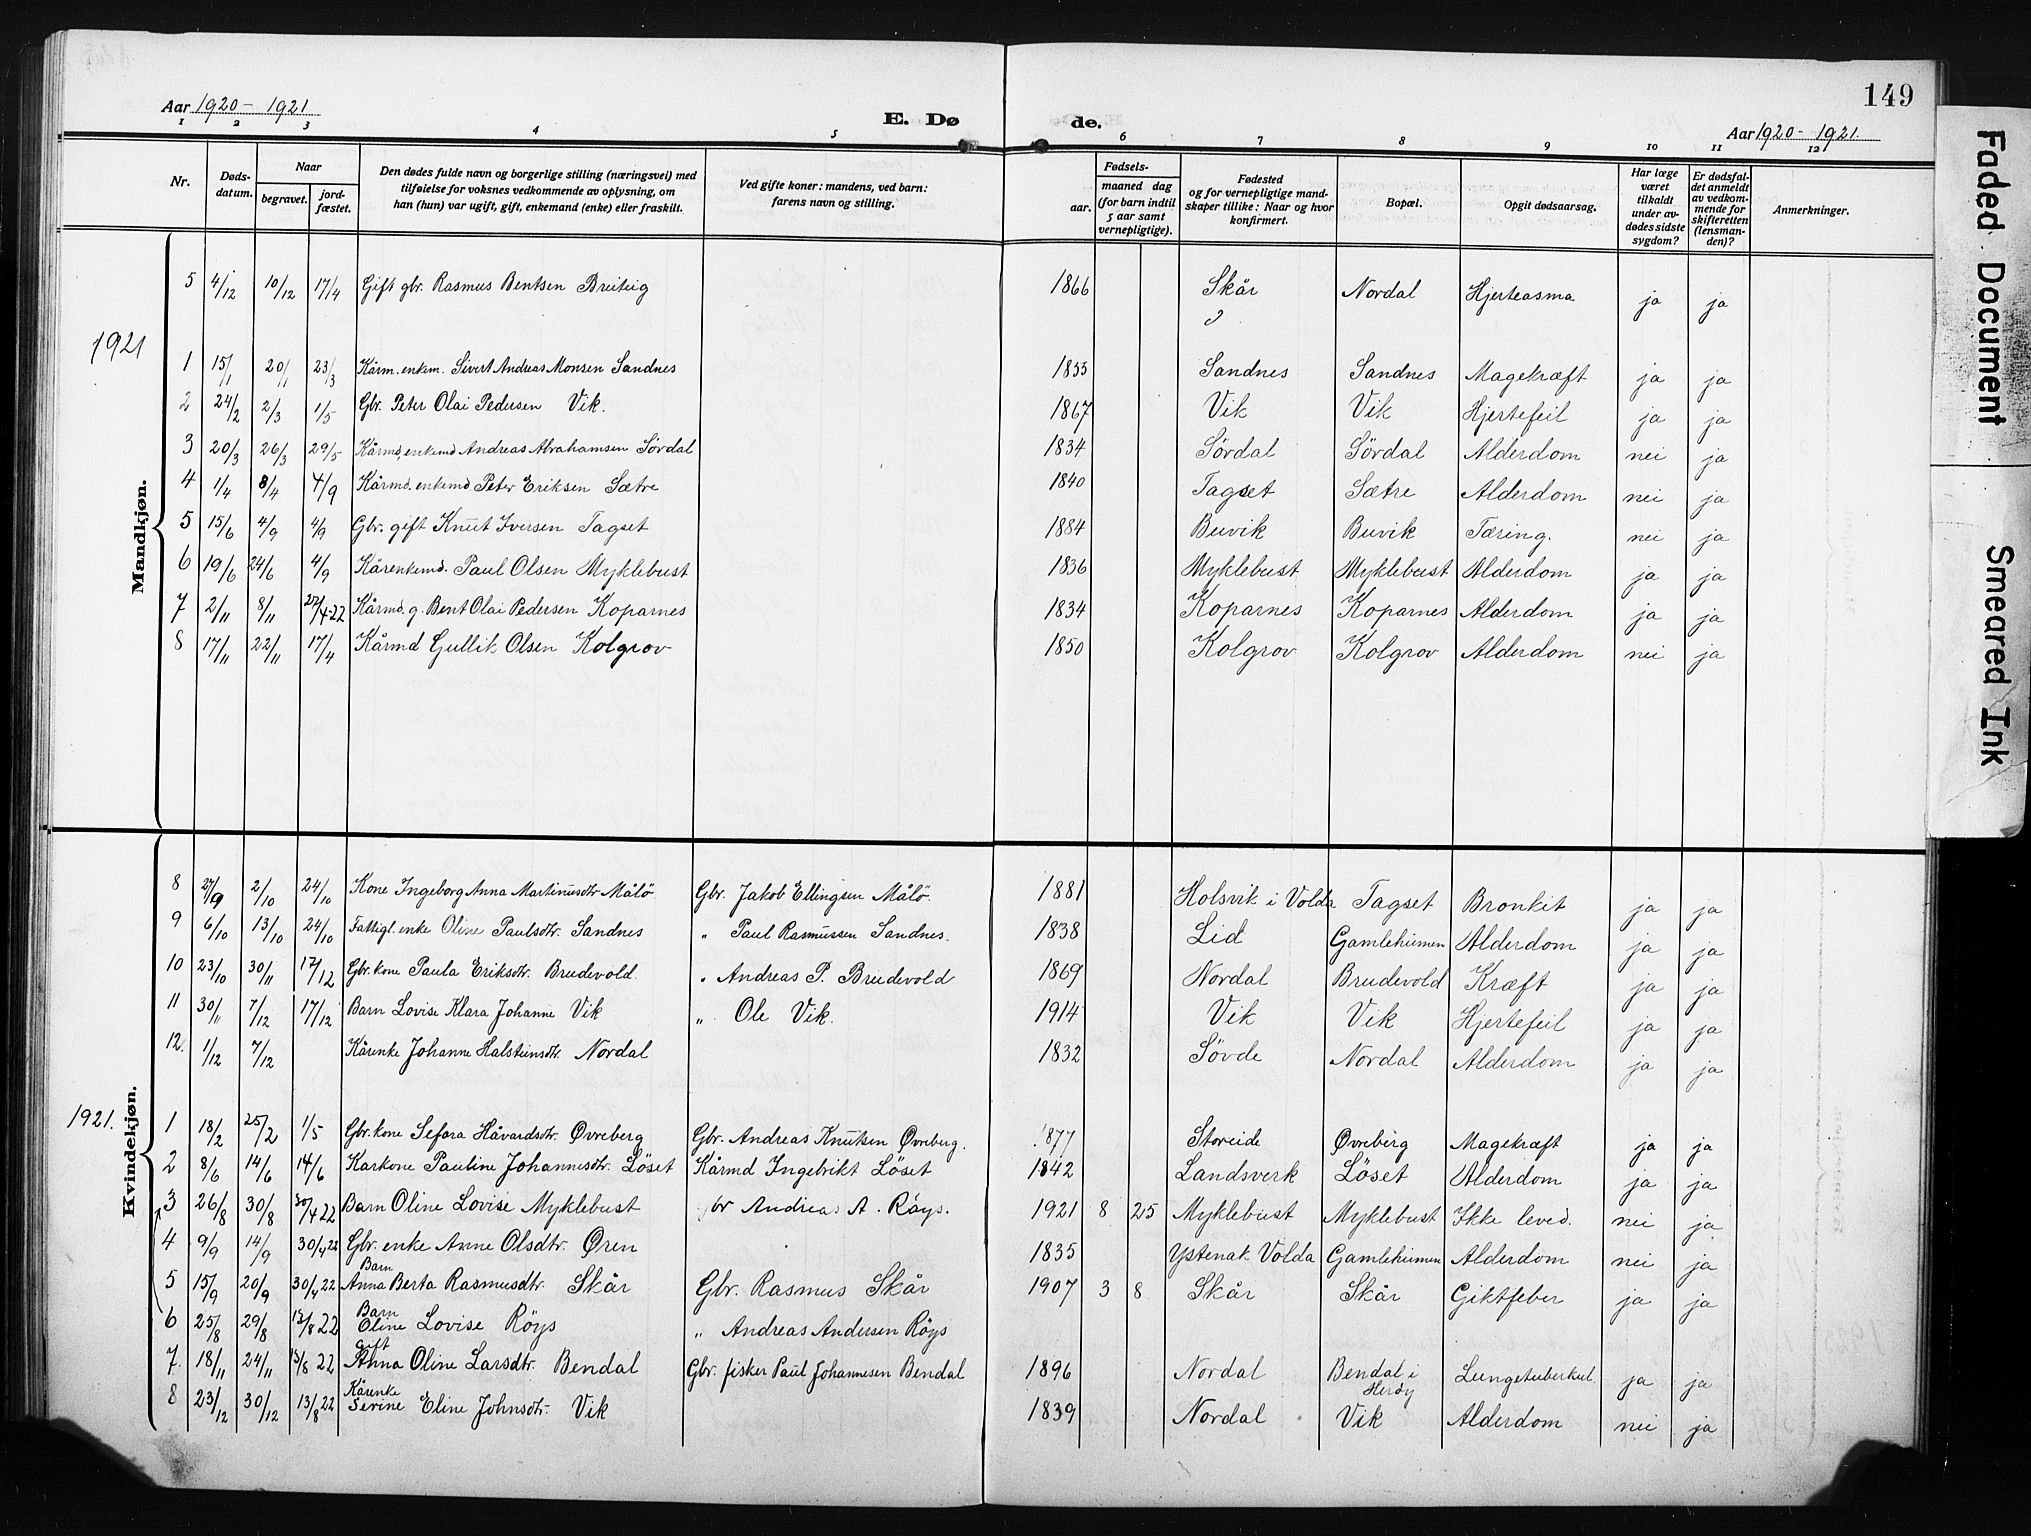 149
Aar 1920 - 1921
E. Dø de.
Aar 1920 - 1921.
1 2 3 4 5 6 7 8 9 10 11 12
Nr. Døds-datum. Naar begravet. jord-fæstet. Den dødes fulde navn og borgerlige stilling (næringsvei) med tilføielse for voksnes vedkommende av oplysning, om han (hun) var ugift, gift, enkemand (enke) eller fraskilt. Ved gifte koner: mandens, ved barn: farens navn og stilling. Fødsels- aar. maaned dag (for barn indtil 5 aar samt vernepligtige). Fødested og for vernepligtige mandskaper tillike: Naar og hvor konfirmert. Bopæl. Opgit dødsaarsag. Har læge været tilkaldt under avdødes sidste sygdom? Er dødsfaldet anmeldt av vedkommende for skifteretten (lensmanden)? Anmerkninger.
Mandkjøn.
5 4/12 10/12 17/4 Gift gbr. Rasmus Bentsen Breiteig 1866 Skår Nordal Hjerteasma ja ja
1921
1 15/1 20/1 23/3 Kårm. enkem. Sivert Andreas Monsen Sandnes 1855 Sandnes Sandnes Magekræft ja ja
2 24/2 2/3 1/5 Gbr. Peter Olai Pedersen Vik. 1867 Vik Vik Hjertefeil ja ja
3 20/3 26/3 29/5 Kårmd. enkemd Andreas Abrahamsen Sördal 1834 Sördal Sördal Alderdom nei ja
4 1/4 8/4 4/9 Kårmd. enkemd Peter Eriksen Sætre 1840 Tagset Sætre Alderdom nei ja
5 15/6 4/9 4/9 Gbr. gift Knut Iversen Tagset 1884 Buvik Buvik Tæring. nei ja
6 19/6 24/6 4/9 Kårenkemd. Paul Olsen Myklebust 1836 Myklebust Myklebust Alderdom ja ja
7 2/11 8/11 27/4-22 Kårmd. g. Bent Olai Pedersen Koparnes 1834 Koparnes Koparnes Alderdom ja ja
8 17/11 22/11 17/4 Kårmd Gullik Olsen Kolgrov 1850 Kolgrov Kolgrov Alderdom nei ja
Kvindekjøn.
8 27/9 2/10 24/10 Kone Ingeborg Anna Martinusdtr Målö Gbr. Jakob Ellingsen Målö. 1881 Holsvik i Volda Tagset Bronkit ja ja
9 6/10 13/10 24/10 Fattigl. enke Oline Paulsdtr. Sandnes " Paul Rasmussen Sandnes. 1838 Lid Gamleheimen Alderdom ja ja
10 23/10 30/11 17/12 Gbr. kone Paula Eriksdtr. Brudevold. " Andreas P. Brudevold 1869 Nordal Brudevold Kræft ja ja
11 30/11 7/12 17/12 Barn Lovise Klara Johanne Vik " Ole Vik. 1914 Vik Vik Hjertefeil ja ja
12. 1/12 7/12 Kårenke Johanne Halsteinsdtr. Nordal 1832 Sövde Nordal Alderdom ja ja
1921.
1 18/2 25/2 1/5 Gbr. kone Sefara Håvardsdtr. Øvreberg Gbr. Andreas Knutsen Øvreberg. 1877 Storeide Øvreberg Magekræft ja ja
2 8/6 14/6 14/6 Karkone Pauline Johannesdtr. Löset Kårmd Ingebrikt Löset 1842 Landsverk Löset Alderdom ja ja
3 26/8 30/8 30/4 22 Barn Oline Lovise Myklebust Gbr Andreas A. Röys. 1921 8 25 Myklebust Myklebust Ikke leved. nei ja
4 9/9 14/9 30/4 22 Gbr. enke Anne Olsdtr. Øren 1835 Ystenak Volda Gamleheimen Alderdom nei ja
5 15/9 20/9 30/4 22 Barn Anna Berta Rasmusdtr. Skår Gbr. Rasmus Skår 1907 3 8 Skår Skår Giktfeber ja ja
6 25/8 29/8 13/8 22 Barn Oline Lovise Röys " Andreas Andersen Röys
7. 18/11 24/11 13/8 22 gift Anna Oline Larsdtr. Bendal Gbr. fisker Paul Johannesen Bendal 1896 Nordal Bendal i Heröy Lungetuberkul. ja ja
8 23/12 30/12 13/8 22 Kårenke Serine Eline Johnsdtr. Vik 1839 Nordal Vik Alderdom nei ja
Faded Document
Smeared Ink